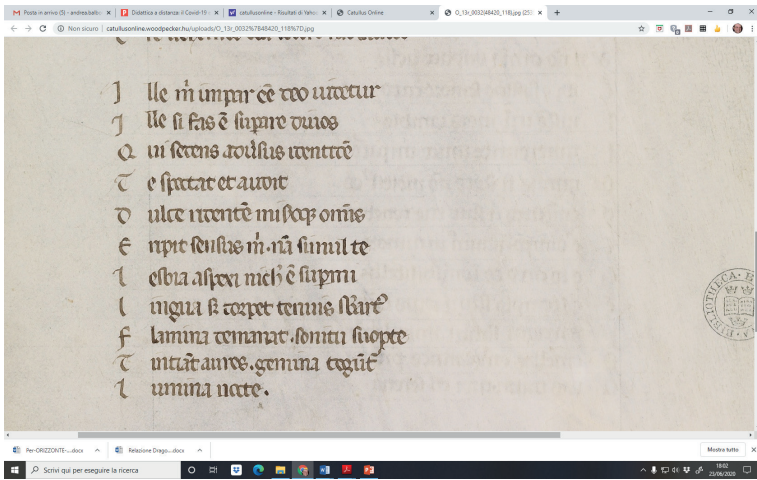 Posta in arrivo (5) - andrea.balbo
Didattica a distanza: il Covid-19
catullusonline - Risultati di Yahoo
Catullus Online
O_13r_0032(48420_118).jpg (253
Non sicuro | catullusonline.woodpecker.hu/uploads/O_13r_0032%7B48420_118%7D.jpg
I lle m̍ impar ēē deo uidetur
I lle si fas ē suꝑare diuos
Q ui sedens aduersus identidē
T e spectat et audit
D ulce ridentē misoqꝫ omis
E ripit sensus m̍. nā simul te
L esbia aspexi nich̍ ē suꝑ mi
L ingua s̄ torpet tenuis sb̄ art᷒
F lamina demanat. sonitu suopte
T intiāt aures. gemina tegūt᷒
L umina nocte.
BIBLIOTHECA
Per-ORIZZONTE-...docx
Relazione Drago...docx
Mostra tutto
Scrivi qui per eseguire la ricerca
18:02
23/06/2020